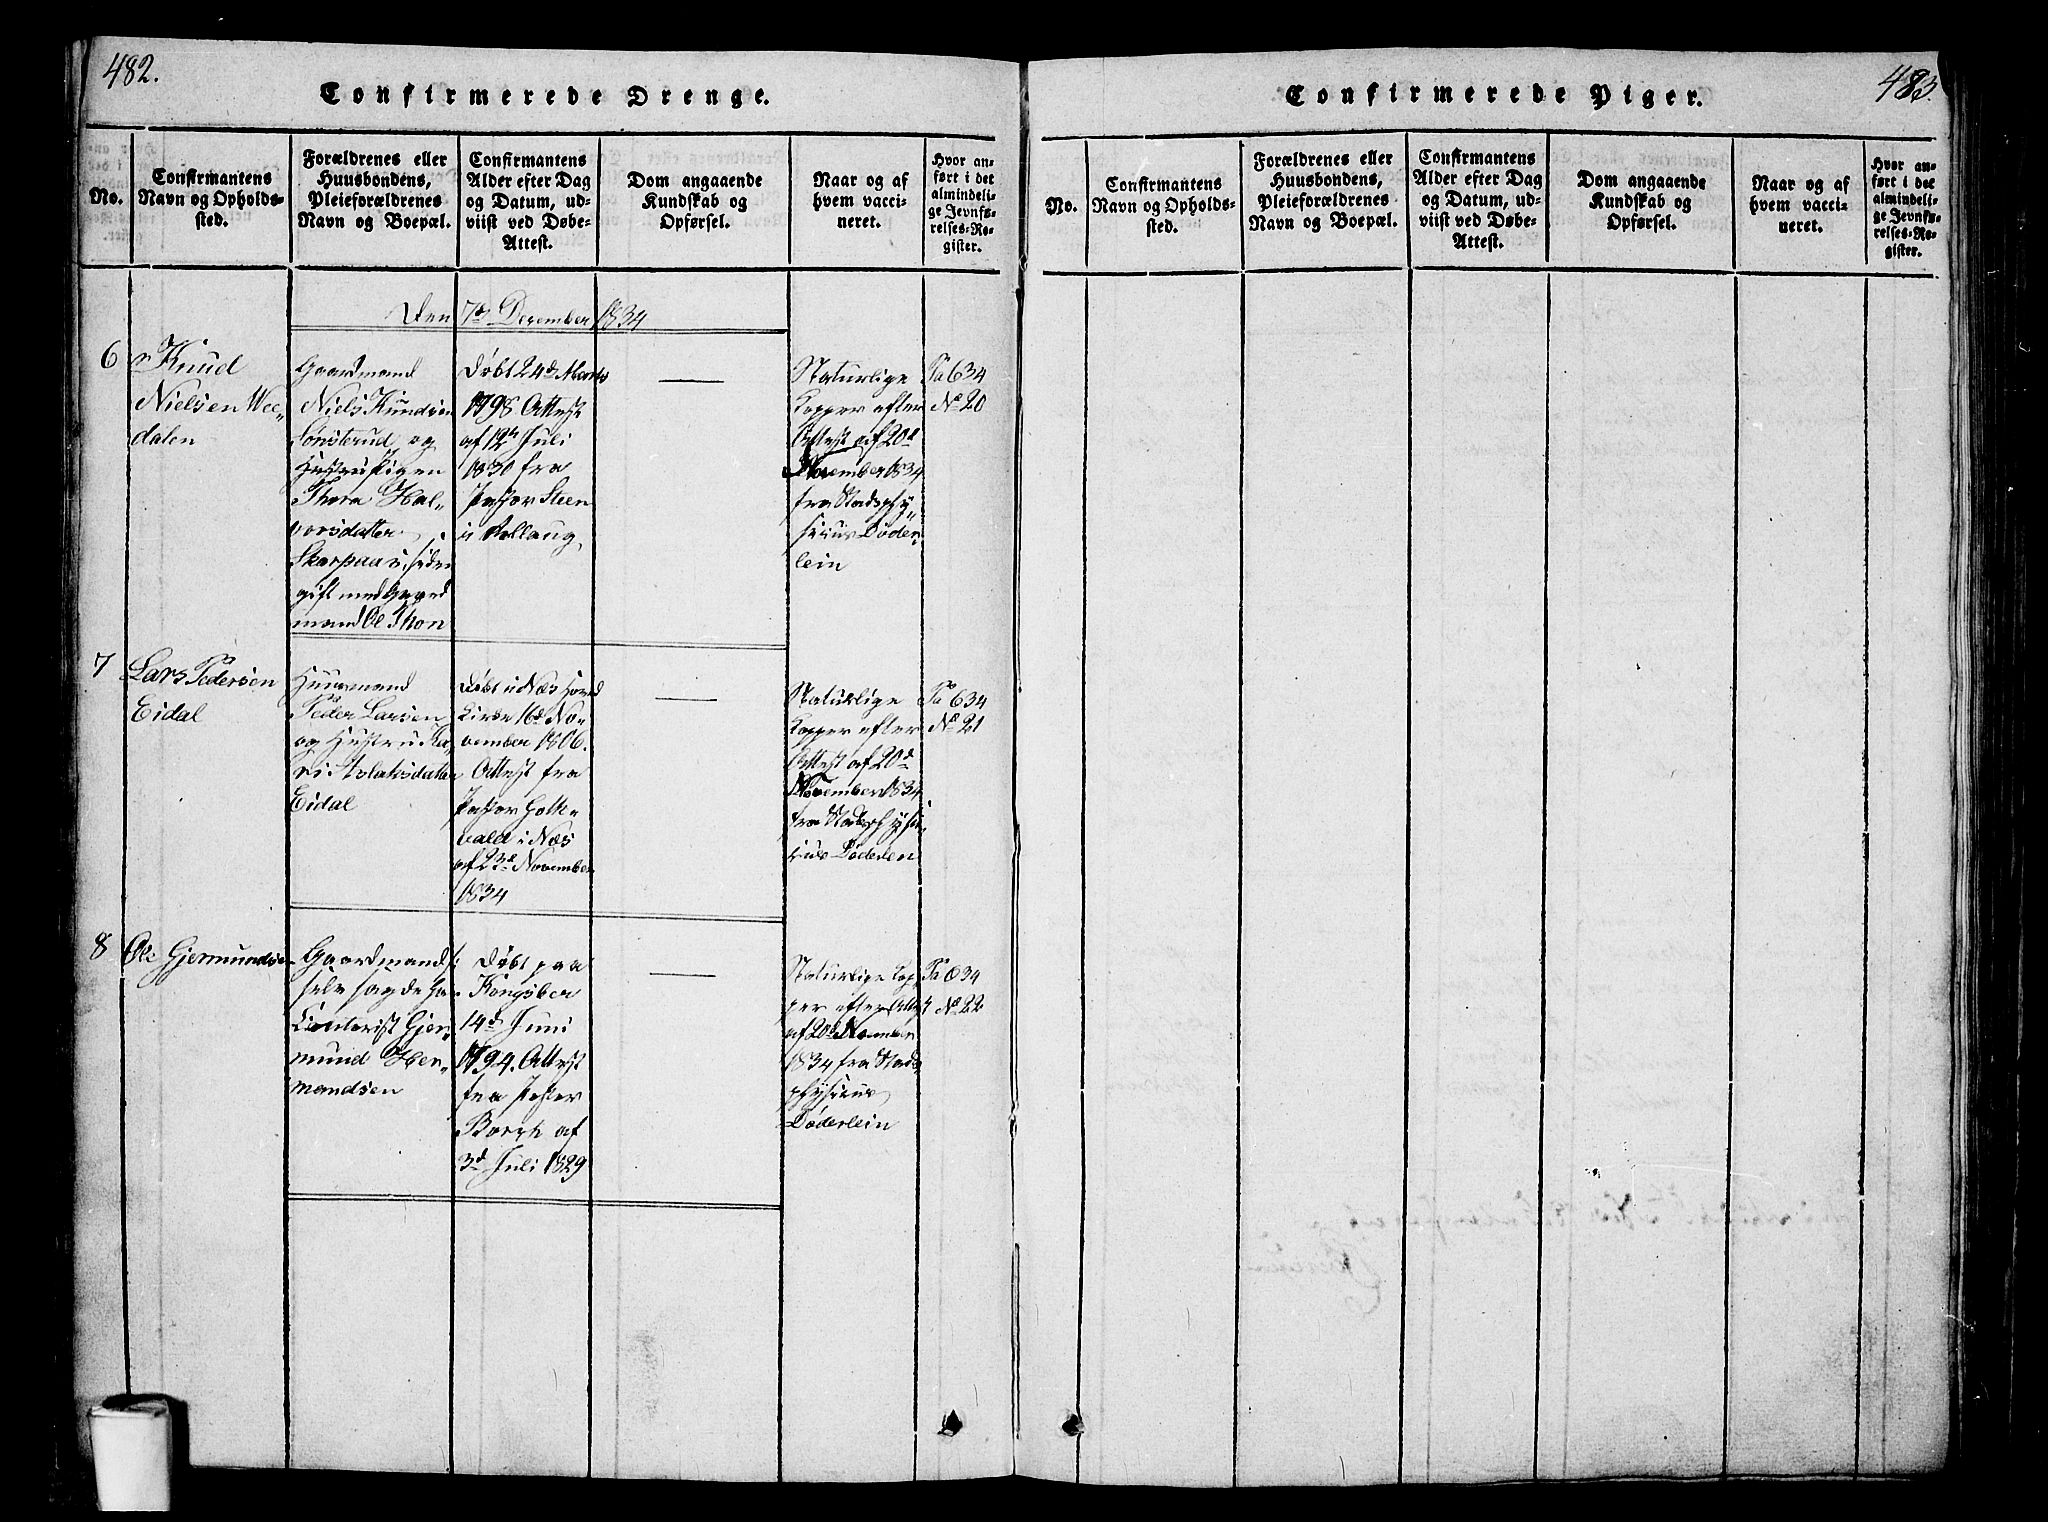 482.
Confirmerede Drenge.
No.
Confirmantens
Navn og Opholds-
sted.
Forældrenes eller
Huusbondens,
Pleieforældrenes
Navn og Boepæl.
Confirmantens
Alder efter Dag
og Datum, ud-
viist ved Døbe-
Attest.
Dom angaaende
Kundskab og
Opførsel.
Naar og af
hvem vacci-
neret.
Hvor an-
ført i det
almindeli-
ge Jevnfø-
relses-Re-
gister.
Den 7de December 1834
6
Knud
Nielsen Wee-
dalen
Gaardmand
Niels Knudsen
Tønsterud og
Hustru Pigen
Thora Hal-
vorsdatter
Skarpaas, siden
gift med Gaard
mand Ole Thon
Døbt 24de Marts
1798 Attest
af 12te Juli
1830 fra
Pastor Steen
i Rollaug
Naturlige
Kopper efter
Attest af 20d
November 1834
fra Stadsphy-
sicus Døder-
lein
Pa 634
No 20
7
Lars Pedersen
Eidal
Huusmand
Peder Larsen
og Hustru Ka-
ri Aslaksdatter
Eidal
Døbt i Næs Hoved
Kirke 16d No-
vember 1806.
Attest fra
Pastor Gott-
vald i Næs
af 23d November
1834
Naturlige
Kopper efter
Attest af 20d
November 1834
fra Stadsphysi-
cus Døderlein
Pa 634
No 21
8
Ole Gjermundsen
Gaardmand,
selv sagde han
Contorist Gjer-
mund Her-
mandsen
Døbt paa
Kongsber
14d Juni
1794. Attest
fra Pastor
Borch af
3d Juli 1829
Naturlige Kop-
per efter Attest
af 20d November
1834 fra Stads-
physicus
Døderlein
Pa 634
No 22
483.
Confirmerede Piger.
No.
Confirmantens
Navn og Opholds-
sted.
Forældrenes eller
Huusbondens,
Pleieforældrenes
Navn og Boepæl.
Confirmantens
Alder efter Dag
og Datum, ud-
viist ved Døbe-
Attest.
Dom angaaende
Kundskab og
Opførsel.
Naar og af
hvem vacci-
neret.
Hvor an-
ført i det
almindeli-
ge Jevnfø-
relses-Re-
gister.